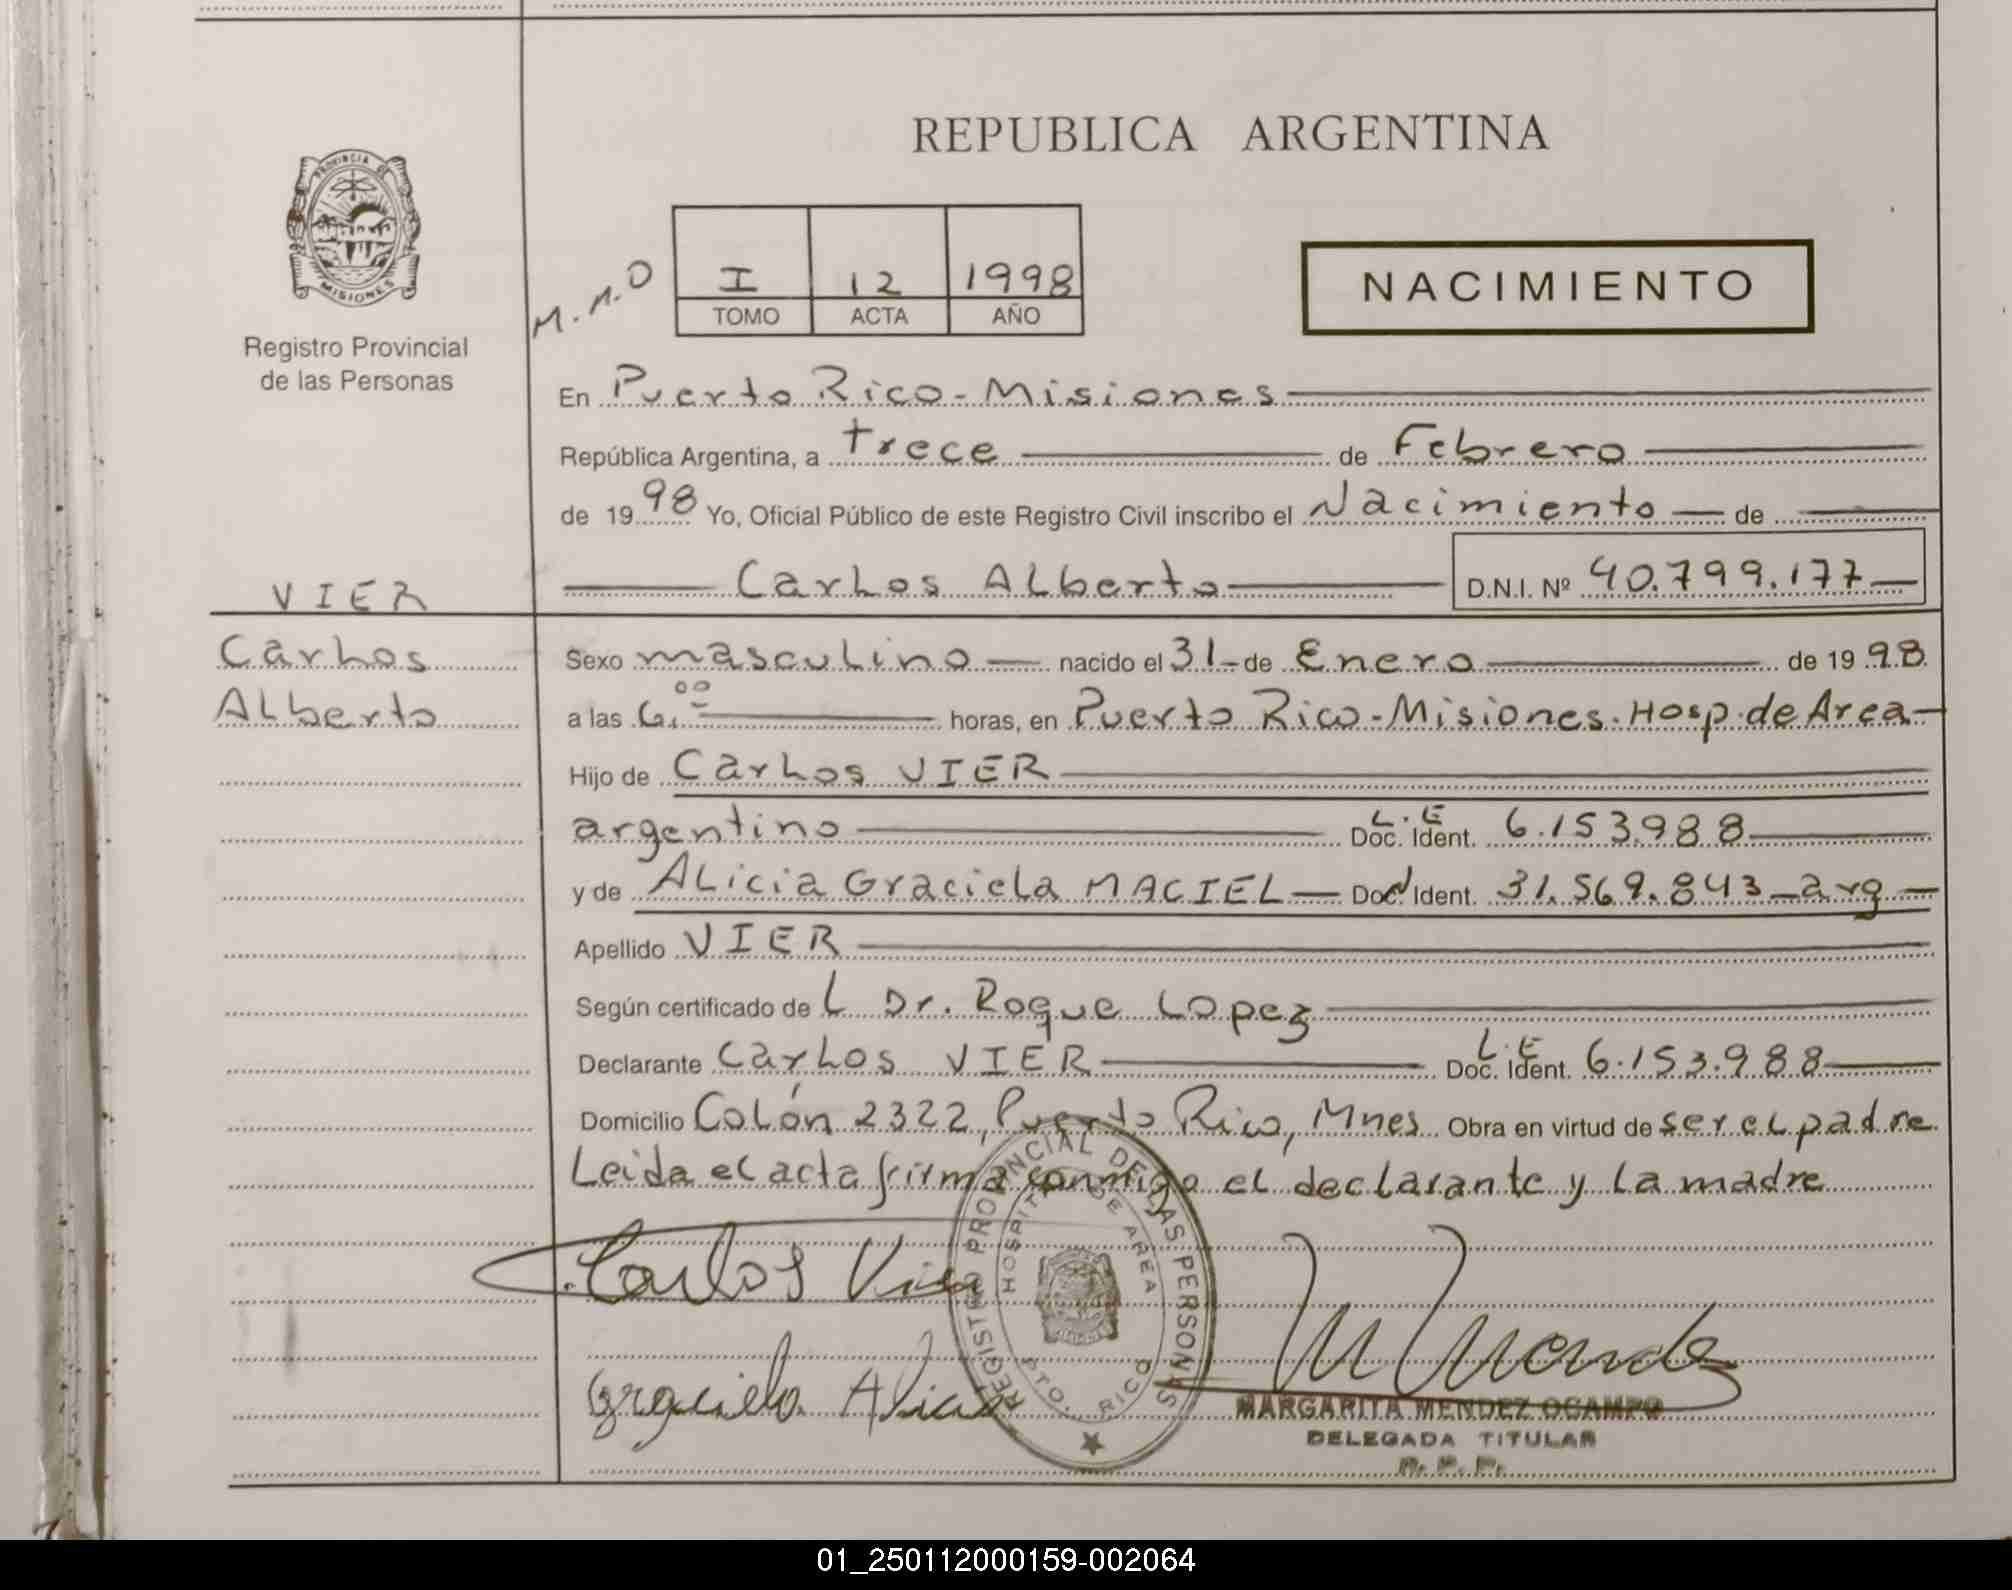 REPUBLICA ARGENTINA
PROVINCIA DE
MISIONES
Registro Provincial
de las Personas
M.M.O
I 12 1998
TOMO ACTA AÑO
NACIMIENTO
En Puerto Rico - Misiones
República Argentina, a trece de Febrero
de 1998 Yo, Oficial Público de este Registro Civil inscribo el Nacimiento de
Carlos Alberto D.N.I. Nº 40.799.177
VIER
Carlos
Alberto
Sexo masculino nacido el 31 de Enero de 1998
a las 6.00 horas, en Puerto Rico - Misiones. Hosp. de Area
Hijo de Carlos VIER
argentino L.E Doc. Ident. 6.153.988
y de Alicia Graciela MACIEL Doc. Ident. 31.569.843 - arg.
Apellido VIER
Según certificado de L Dr. Roque Lopez
Declarante Carlos VIER L.E Doc. Ident. 6.153.988
Domicilio Colón 2322, Puerto Rico, Mnes Obra en virtud de ser el padre
Leida el acta firma conmigo el declarante y la madre
Carlos Vier
Graciela Alicia
REGISTRO PROVINCIAL DE LAS PERSONAS
HOSPITAL DE AREA
PTO. RICO
MARGARITA MENDEZ OCAMPO
DELEGADA TITULAR
R. P. P.
01_250112000159-002064